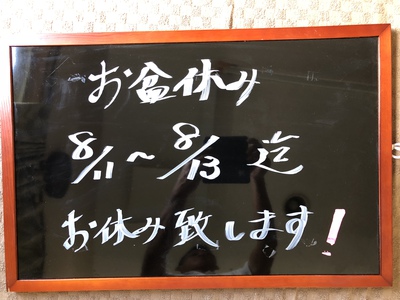 お盆休み
8/11～8/13 迄
お休み致します!